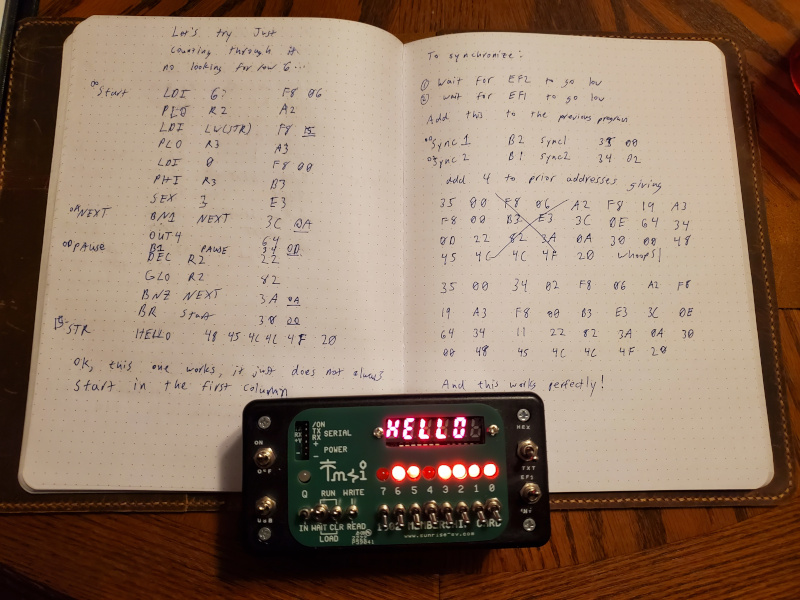 Let's try Just
counting through it
no looking for row 6...
00 Start LDI 6? F8 06
PLO R2 A2
LDI LW(STR) F8 15
PLO R3 A3
LDI 0 F8 00
PHI R3 B3
SEX 3 E3
0A NEXT BN1 NEXT 3C 0A
OUT4 64
0D PAUSE B1 PAUSE 34 0D
DEC R2 22
GLO R2 82
BNZ NEXT 3A 0A
BR Start 30 00
15 STR HELLO 48 45 4C 4C 4F 20
OK, this one works, it just does not always
start in the first column
To synchronize:
① Wait for EF2 to go low
② wait for EF1 to go low
Add this to the previous program
00 Sync1 B2 sync1 35 00
02 Sync2 B1 sync2 34 02
add 4 to prior addresses giving
35 00 F8 06 A2 F8 19 A3
F8 00 B3 E3 3C 0E 64 34
0D 22 82 3A 0A 30 00 48
45 4C 4C 4F 20 whoops!
35 00 34 02 F8 06 A2 F8
19 A3 F8 00 B3 E3 3C 0E
64 34 11 22 82 3A 0A 30
00 48 45 4C 4C 4F 20
And this works perfectly!
HELLO
/ON
TX
RX
+
-
RX
+V
SERIAL
POWER
ON
OFF
HEX
TXT
EF1
IN
Tmsi
7 6 5 4 3 2 1 0
Q
RUN WRITE
IN WAIT CLR READ
LOAD
1802 MEMBERSHIP CARD
www.sunrise-ev.com